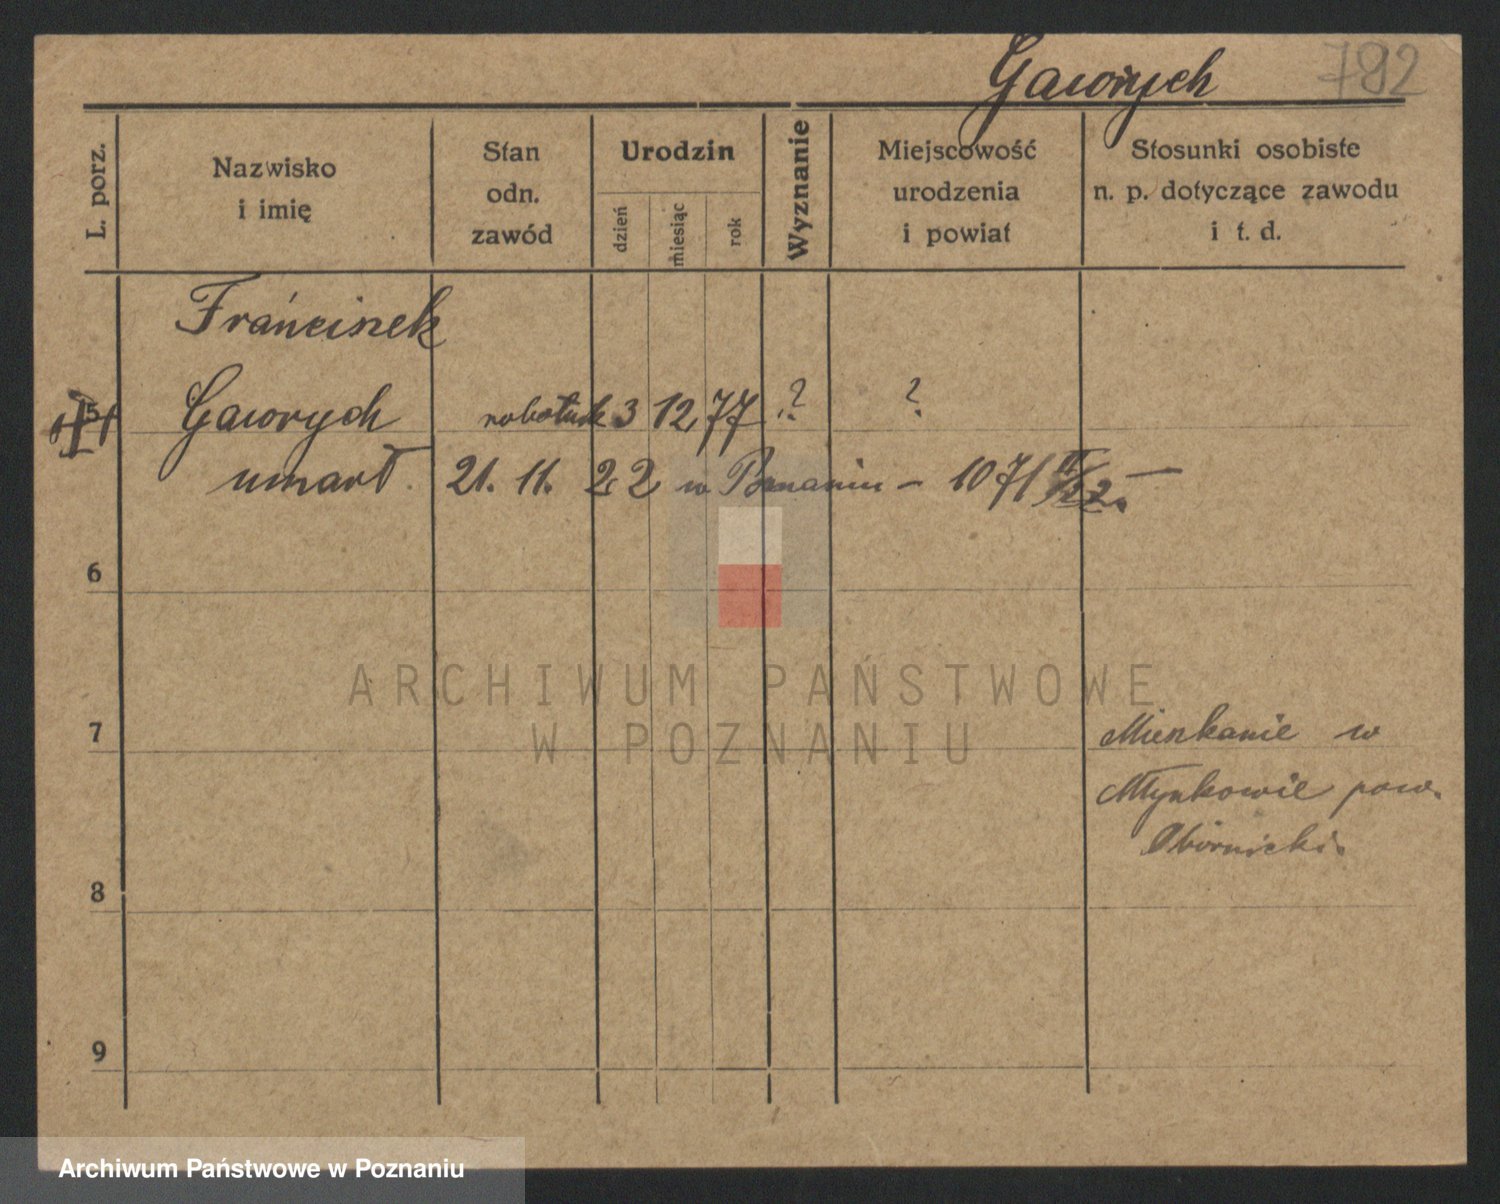 Gaworych 792
L. porz.
Nazwisko
i imię
Stan
odn.
zawód
Urodzin
dzień
miesiąc
rok
Wyznanie
Miejscowość
urodzenia
i powiat
Stosunki osobiste
n. p. dotyczące zawodu
i t. d.
Franciszek
5 Gaworych robotnik 3 12 77 ? ?
umarł 21. 11. 22 w Poznaniu – 1071
6
ARCHIWUM PAŃSTWOWE
W POZNANIU
7 Mieszkanie w
Młynkowie pow.
Obornicki.
8
9
Archiwum Państwowe w Poznaniu